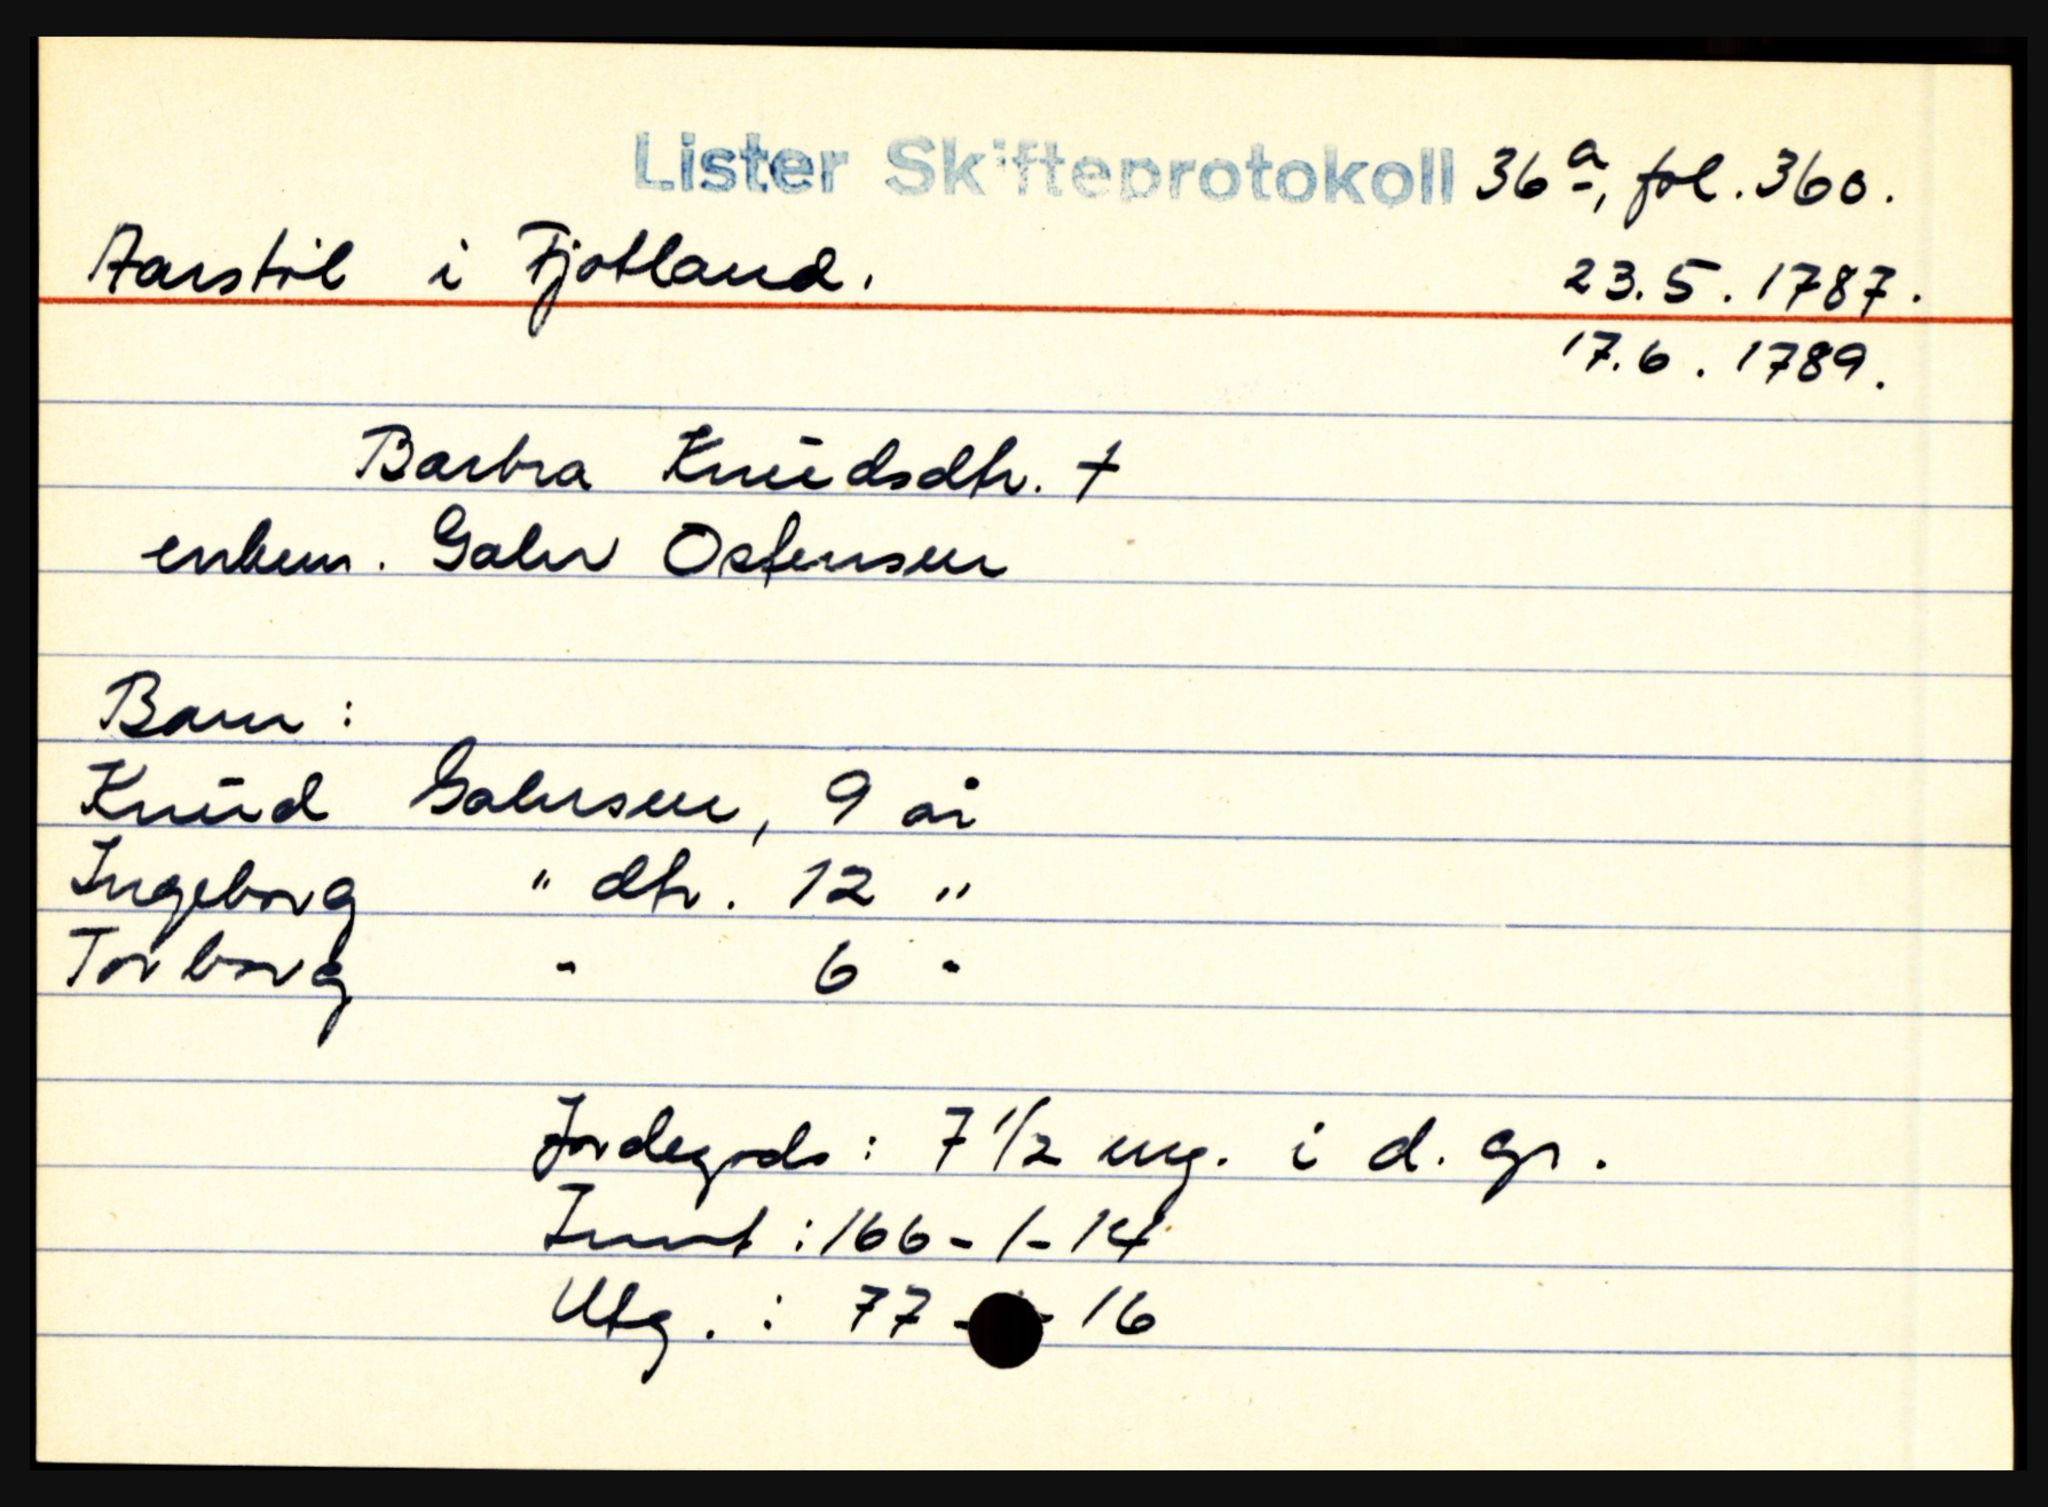 Lister Skifteprotokoll 36a, fol. 360.
Aarstöl i Fjotland. 23.5. 1787.
17.6. 1789.
Barbra Knüdsdtr. †
enkem. Gahr Ostensen
Barn:
Knüd Gahrsen, 9 år
Ingeborg " dtr. 12 "
Torborg " 6 "
Jordegods: 7 1/2 mg. i d. gr.
Innt: 166-1-14
Utg.: 77 - - 16